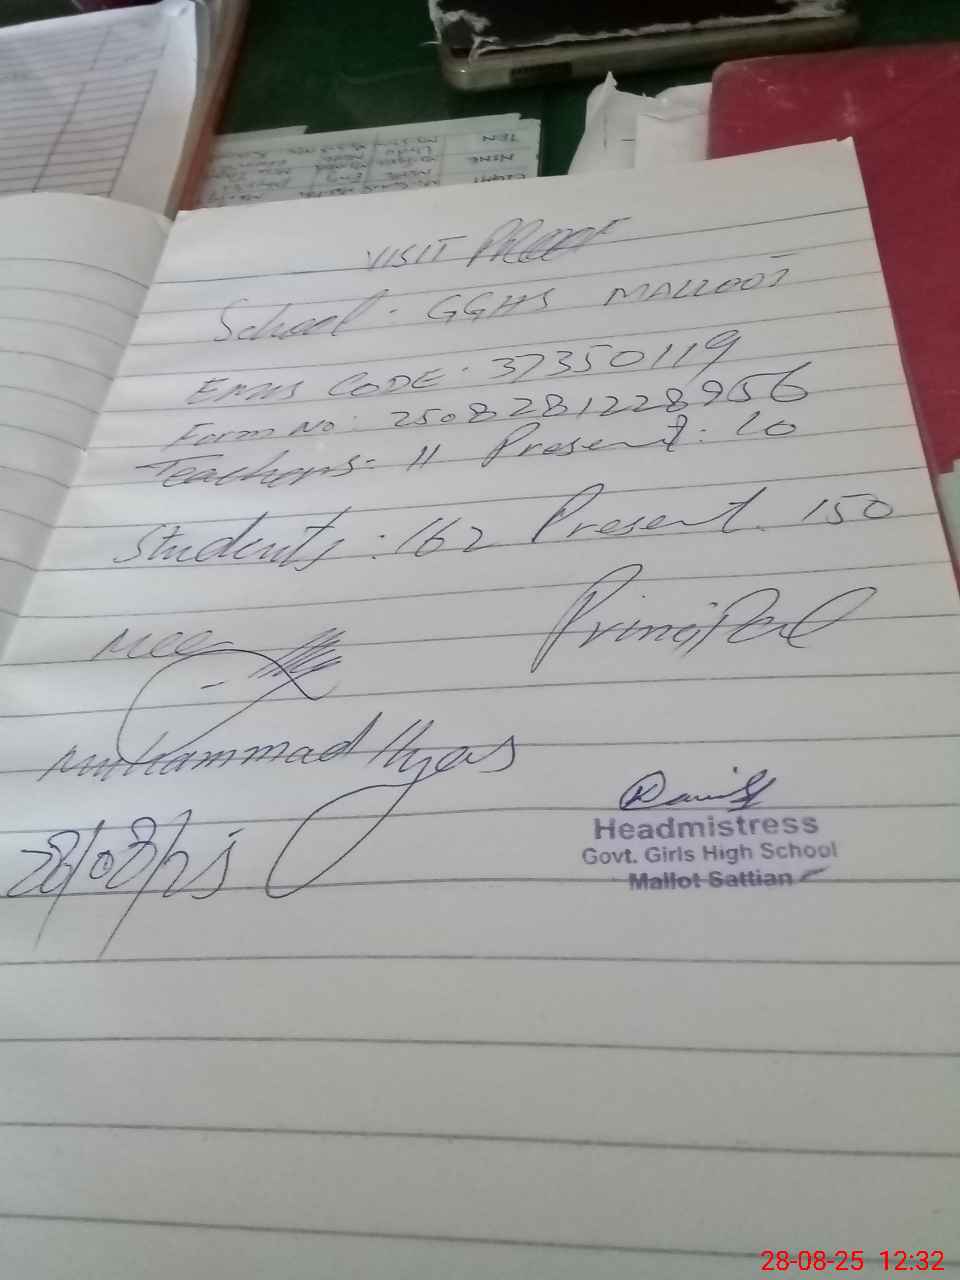 TEN
NINE
EIGHT
VISIT Proof
School: GGHS MALLOOT
EMIS CODE: 37350119
Form No: 2508281228956
Teachers: 11 Present: 10
Students: 162 Present: 150
MEE
Principal
Muhammad Ilyas
28/08/25
Headmistress
Govt. Girls High School
Mallot Sattian
28-08-25 12:32